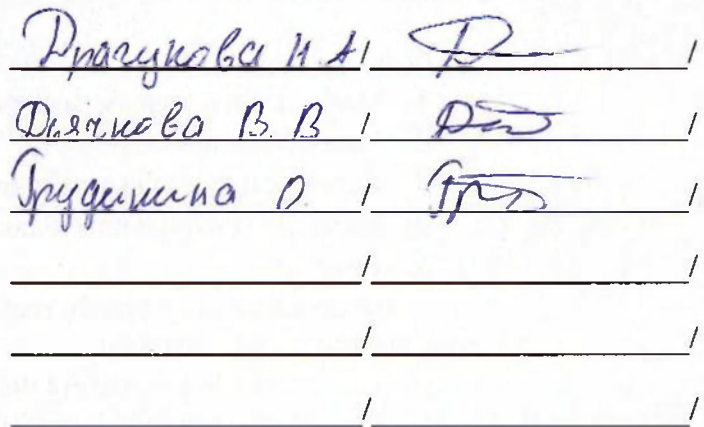 Драгунова Н.А/ /
Дьячкова В.В / /
Грудинина О. / /
/ /
/ /
/ /